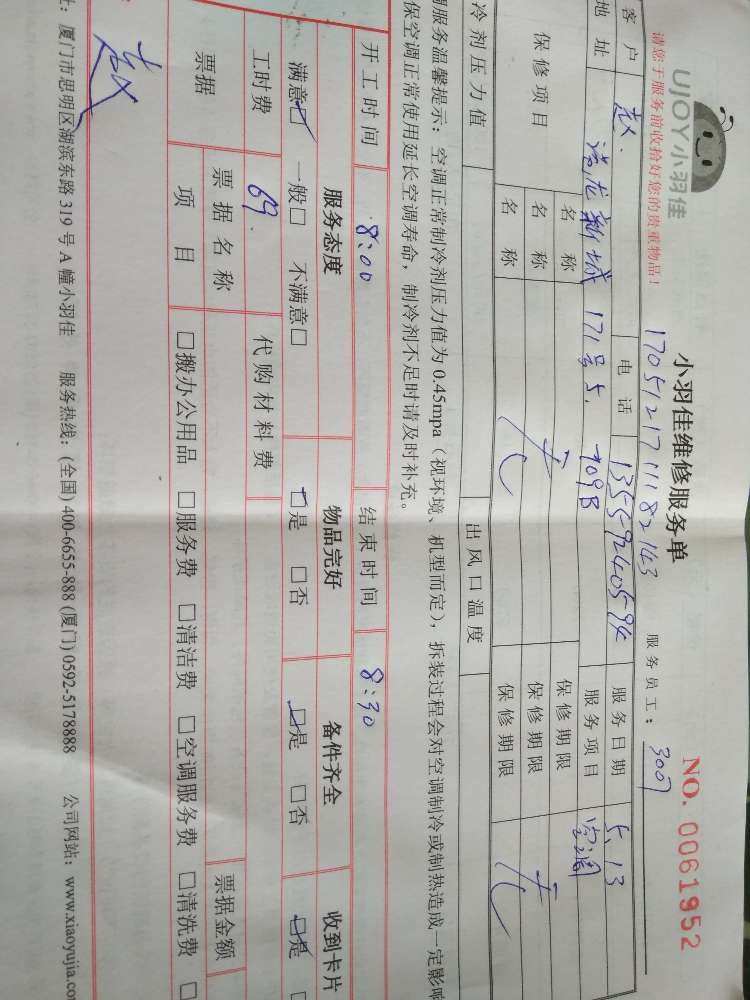 UJOY小羽佳
小羽佳维修服务单
NO. 0061952
请您于服务前收拾好您的贵重物品！
服务员工：3007
客户 赵 电话 13559240594 服务日期 5.13
地址 171号5. 709B 服务项目 空调
保修项目
名称 无 保修期限 无
名称 保修期限
名称 保修期限
冷剂压力值 出风口温度
调服务温馨提示：空调正常制冷剂压力值为0.45mpa（视环境、机型而定），拆装过程会对空调制冷或制热造成一定影响
保空调正常使用延长空调寿命，制冷剂不足时请及时补充。
开工时间 8:00 结束时间 8:30
服务态度 物品完好 备件齐全 收到卡片
满意□ 一般□ 不满意□ □是 □否 □是 □否 □是
工时费 69. 代购材料费
票据 票据名称 票据金额
项目 □搬办公用品 □服务费 □清洁费 □空调服务费 □清洗费 □
赵
址：厦门市思明区湖滨东路319号A幢小羽佳 服务热线：(全国) 400-6655-888 (厦门) 0592-5178888 公司网站：www.xiaoyujia.co